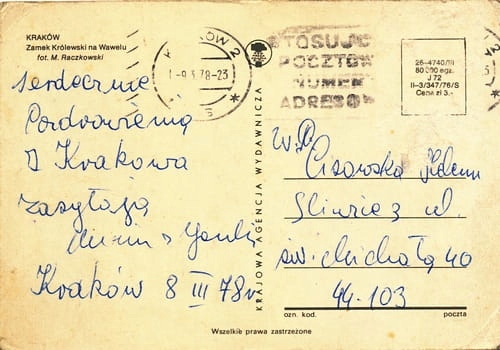 KRAKÓW
Zamek Królewski na Wawelu
fot. M. Raczkowski
KRAKÓW 2
-9.3.78-23
STOSUJC
POCZTOW
NUMER
ADRESO
26-4740/III
80 000 egz.
J 72
II-3/347/76/S
Cena zł 3.-
KRAJOWA AGENCJA WYDAWNICZA
serdeczne
Pozdrowienia
z Krakowa
zasyłają
Kraków 8 III 78r
W.P.
Cisowska Helena
Gliwice ul.
św. Michała 40
44-103
ozn. kod. poczta
Wszelkie prawa zastrzeżone